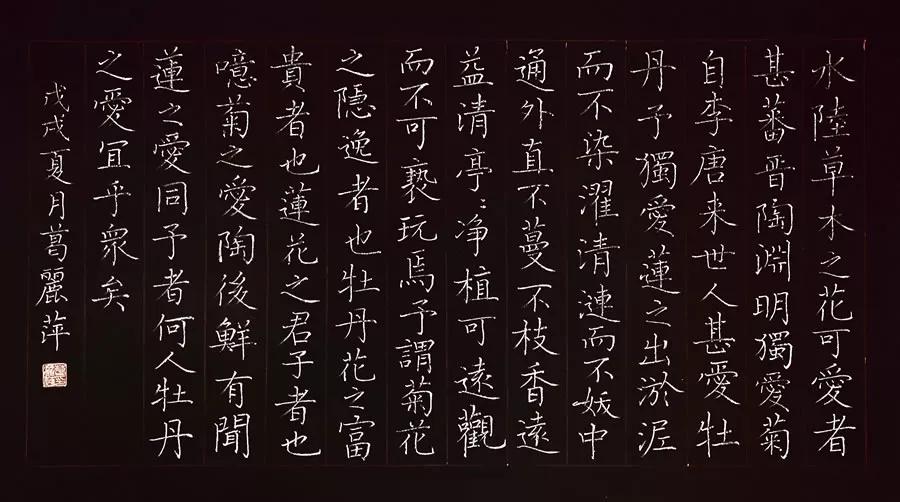 水陸草木之花可愛者
甚蕃晋陶淵明獨愛菊
自李唐来世人甚愛牡
丹予獨愛蓮之出淤泥
而不染濯清漣而不妖中
通外直不蔓不枝香遠
益清亭〻净植可遠觀
而不可褻玩焉予謂菊花
之隱逸者也牡丹花之富
貴者也蓮花之君子者也
噫菊之愛陶後鮮有聞
蓮之愛同予者何人牡丹
之愛宜乎衆矣
戊戌夏月葛麗萍